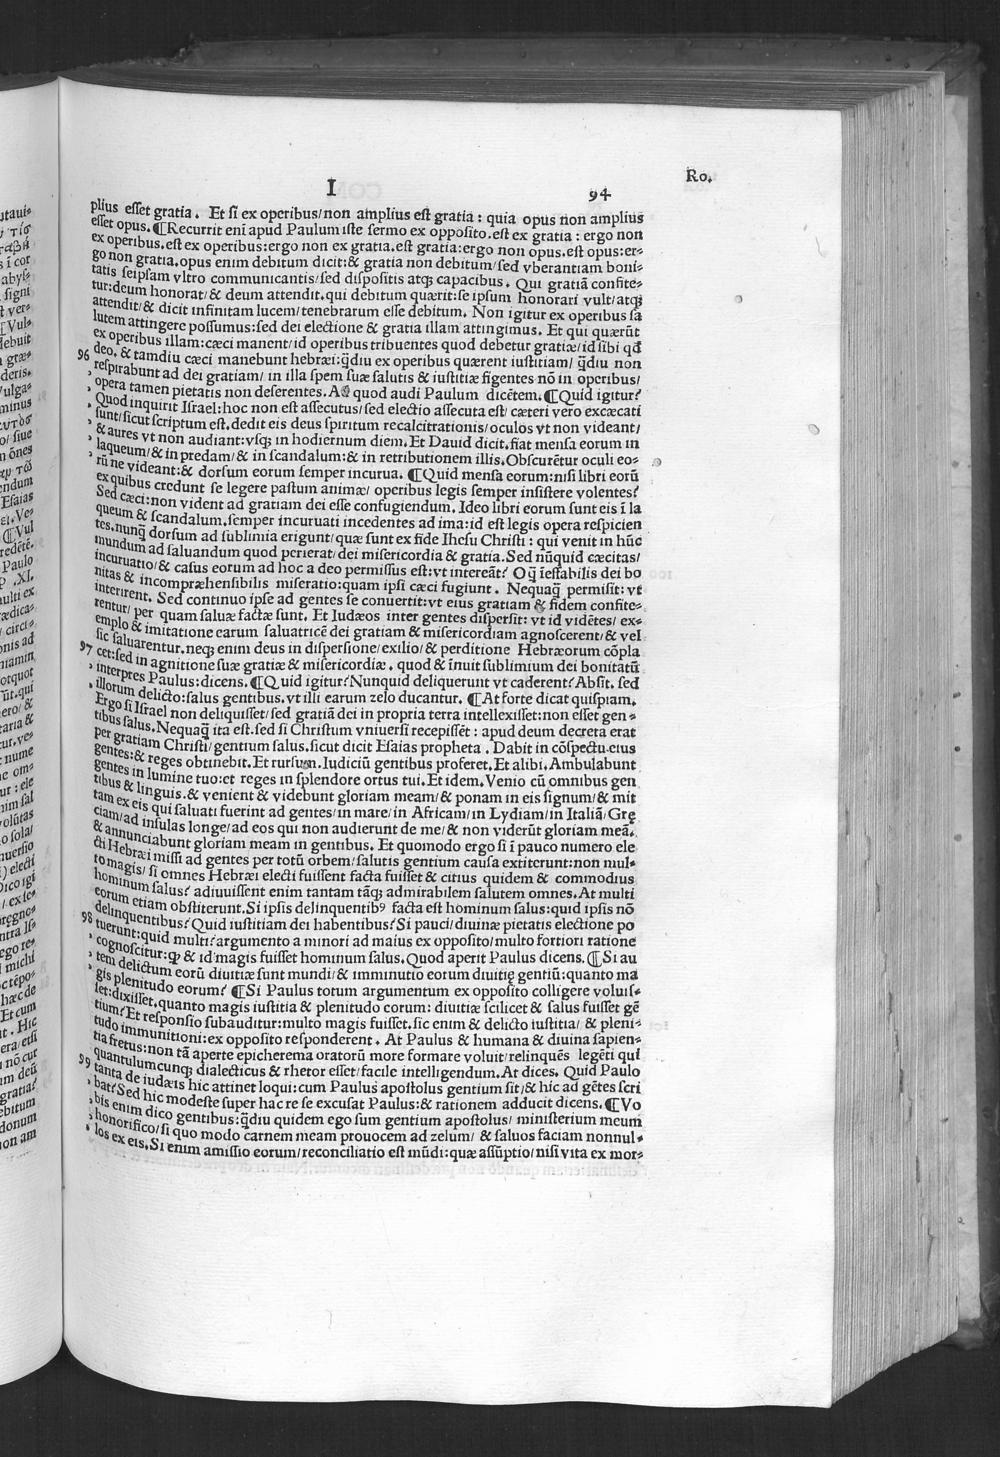 Ro.
I
94
plius esset gratia. Et si ex operibus/non amplius est gratia: quia opus non amplius
esset opus. ¶Recurrit eni apud Paulum iste sermo ex opposito. est ex gratia: ergo non
ex operibus. est ex operibus: ergo non ex gratia. est gratia: ergo non opus. est opus: er-
go non gratia. opus enim debitum dicit: & gratia non debitum/sed vberantiam boni-
tatis seipsam vltro communicantis/sed dispositis atq; capacibus. Qui gratiã confite-
tur: deum honorat/& deum attendit. qui debitum quærit: se ipsum honorari vult/atq;
attendit/& dicit infinitam lucem/tenebrarum esse debitum. Non igitur ex operibus sa
lutem attingere possumus: sed dei electione & gratia illam attingimus. Et qui quærũt
ex operibus illam: cæci manent/id operibus tribuentes quod debetur gratiæ/id sibi qđ
deo. & tamdiu cæci manebunt hebræi: q̃diu ex operibus quærent iustitiam/ q̃diu non
96 respirabunt ad dei gratiam/ in illa spem suæ salutis & iustitiæ figentes nõ in operibus/
opera tamen pietatis non deserentes. Ad quod audi Paulum dicẽtem. ¶Quid igitur?
Quod inquirit Israel: hoc non est assecutus/sed electio assecuta est/ cæteri vero excæcati
sunt/sicut scriptum est. dedit eis deus spiritum recalcitrationis/oculos vt non videant/
& aures vt non audiant: vsq; in hodiernum diem. Et Dauid dicit. fiat mensa eorum in
laqueum/& in predam/& in scandalum: & in retributionem illis. Obscurẽtur oculi eo-
rũ ne videant: & dorsum eorum semper incurua. ¶Quid mensa eorum: nisi libri eorũ
ex quibus credunt se legere pastum animæ/ operibus legis semper insistere volentes?
Sed cæci: non vident ad gratiam dei esse confugiendum. Ideo libri eorum sunt eis ĩ la
queum & scandalum. semper incuruati incedentes ad ima: id est legis opera respicien
tes. nunq̃ dorsum ad sublimia erigunt/quæ sunt ex fide Ihesu Christi: qui venit in hũc
mundum ad saluandum quod perierat/ dei misericordia & gratia. Sed nũquid cæcitas/
incuruatio/& casus eorum ad hoc a deo permissus est: vt intereãt? Oq̃ ĩestabilis dei bo
nitas & incompræhensibilis miseratio: quam ipsi cæci fugiunt. Nequaq̃ permisit: vt
interirent. Sed continuo ipse ad gentes se conuertit: vt eius gratiam & fidem confite-
rentur/ per quam saluæ factæ sunt. Et Iudæos inter gentes dispersit: vt id vidẽtes/ ex-
emplo & imitatione earum saluatricẽ dei gratiam & misericordiam agnoscerent/& vel
sic saluarentur. neq; enim deus in dispersione/exilio/& perditione Hebræorum cõpla
97 cet: sed in agnitione suæ gratiæ & misericordiæ. quod & ĩnuit sublimium dei bonitatũ
interpres Paulus: dicens. ¶Quid igitur? Nunquid deliquerunt vt caderent? Absit. sed
illorum delicto: salus gentibus. vt illi earum zelo ducantur. ¶At forte dicat quispiam.
Ergo si Israel non deliquisset/sed gratiã dei in propria terra intellexisset: non esset gen-
tibus salus. Nequaq̃ ita est. sed si Christum vniuersi recepisset: apud deum decreta erat
per gratiam Christi/gentium salus. sicut dicit Esaias propheta. Dabit in cõspectu eius
gentes: & reges obtinebit. Et rursum. Iudiciũ gentibus proferet. Et alibi. Ambulabunt
gentes in lumine tuo: et reges in splendore ortus tui. Et idem. Venio cũ omnibus gen
tibus & linguis. & venient & videbunt gloriam meam/& ponam in eis signum/& mit
tam ex eis qui saluati fuerint ad gentes/in mare/in Africam/in Lydiam/in Italiã/Grę
ciam/ad insulas longe/ad eos qui non audierunt de me/& non viderũt gloriam meã.
& annunciabunt gloriam meam in gentibus. Et quomodo ergo si ĩ pauco numero ele
cti Hebræi missi ad gentes per totũ orbem/salutis gentium causa extiterunt: non mul-
to magis/ si omnes Hebræi electi fuissent facta fuisset & citius quidem & commodius
hominum salus? adiuuissent enim tantam tãq; admirabilem salutem omnes. At multi
eorum etiam obstiterunt. Si ipsis delinquentibꝰ facta est hominum salus: quid ipsis nõ
delinquentibus? Quid iustitiam dei habentibus? Si pauci/diuinæ pietatis electione po
98 tuerunt: quid multi? argumento a minori ad maius ex opposito/multo fortiori ratione
cognoscitur: ꝙ & id magis fuisset hominum salus. Quod aperit Paulus dicens. ¶Si au
tem delictum eorũ diuitiæ sunt mundi/& imminutio eorum diuitię gentiũ: quanto ma
gis plenitudo eorum? ¶Si Paulus totum argumentum ex opposito colligere voluis-
set: dixisset. quanto magis iustitia & plenitudo eorum: diuitiæ scilicet & salus fuisset gẽ
tium? Et responsio subauditur: multo magis fuisset. sic enim & delicto iustitia/ & pleni-
tudo immunitioni: ex opposito responderent. At Paulus & humana & diuina sapien-
tia fretus: non tã aperte epicherema oratorũ more formare voluit/relinquẽs legẽti qui
quantulumcunq; dialecticus & rhetor esset/facile intelligendum. At dices. Quid Paulo
99 tanta de iudæis hic attinet loqui: cum Paulus apostolus gentium sit/& hic ad gẽtes scri
bat? Sed hic modeste super hac re se excusat Paulus: & rationem adducit dicens. ¶Vo
bis enim dico gentibus: q̃diu quidem ego sum gentium apostolus/ ministerium meum
honorifico/si quo modo carnem meam prouocem ad zelum/ & saluos faciam nonnul-
los ex eis. Si enim amissio eorum/reconciliatio est mũdi: quæ assũptio/nisi vita ex mor-